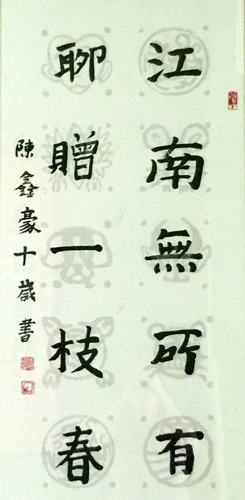 江南無所有
聊贈一枝春
陳鑫豪十歲書